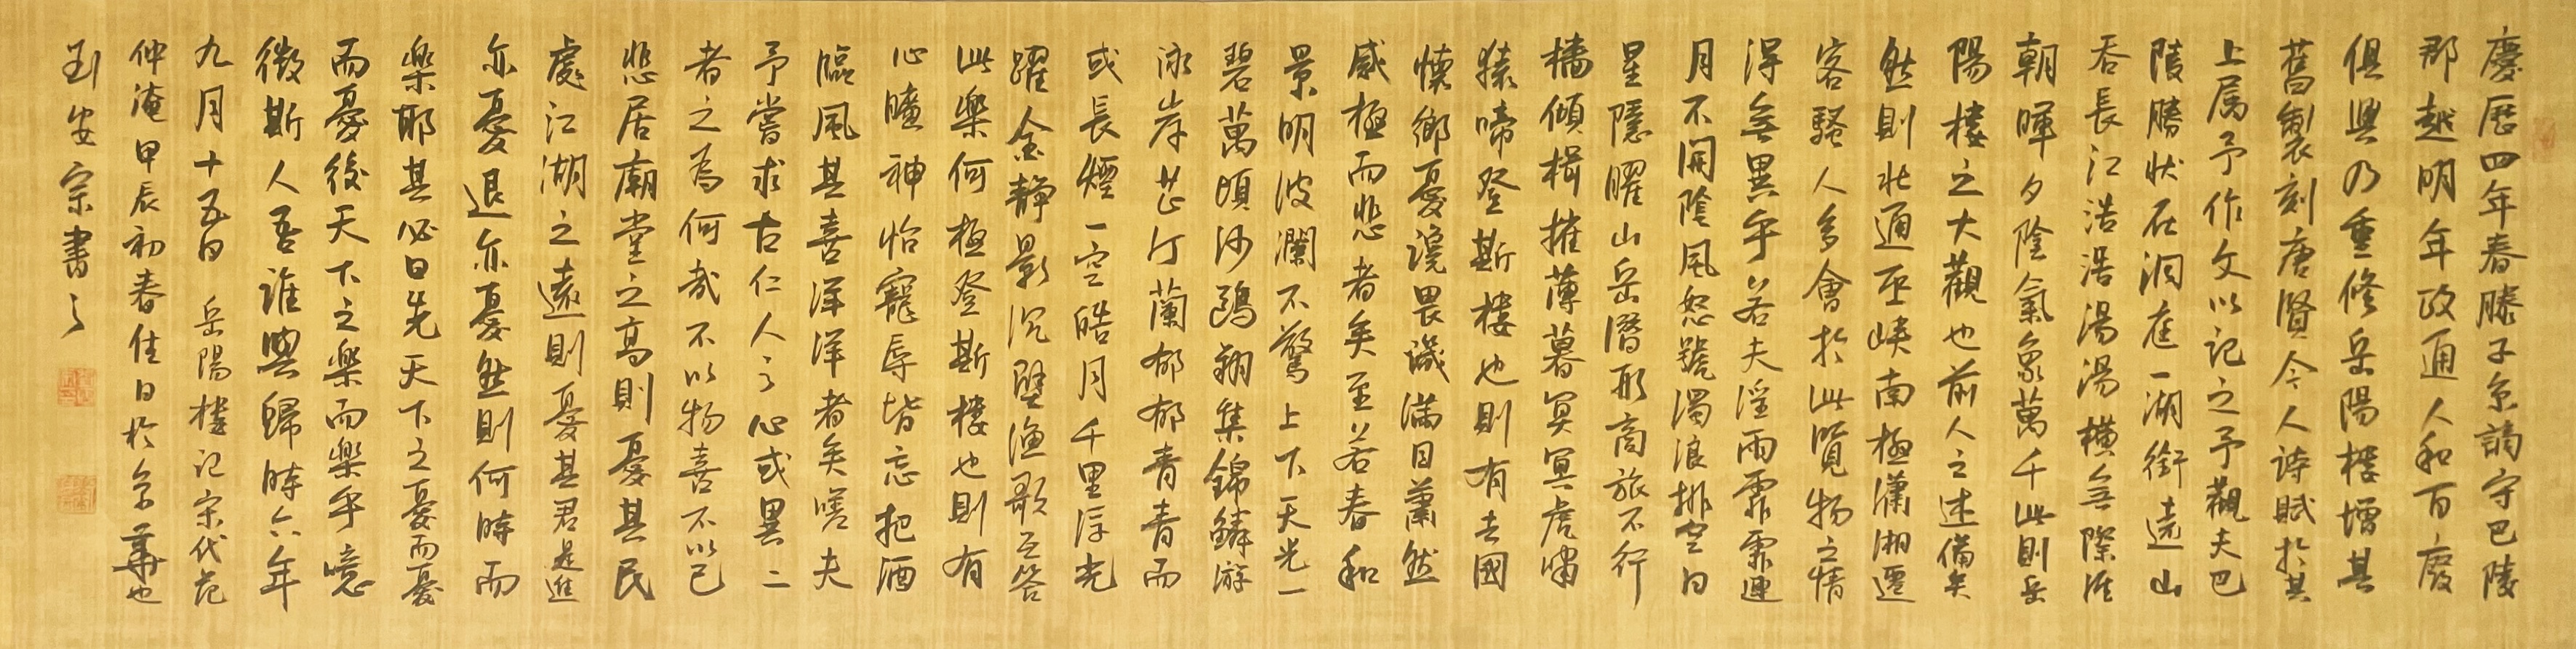 慶歷四年春滕子京謫守巴陵
郡越明年政通人和百廢
俱興乃重修岳陽樓增其
舊製刻唐賢今人詩賦於其
上属予作文以记之予觀夫巴
陵勝状在洞庭一湖銜遠山
吞長江浩浩湯湯橫無際涯
朝暉夕陰氣象萬千此則岳
陽樓之大觀也前人之述備矣
然則北通巫峽南極瀟湘遷
客騷人多會於此覽物之情
得無異乎若夫淫雨霏霏連
月不開陰風怒號濁浪排空日
星隱曜山岳潛形商旅不行
檣傾楫摧薄暮冥冥虎嘯
猿啼登斯樓也則有去國
懷鄉憂讒畏譏滿目蕭然
感極而悲者矣至若春和
景明波瀾不驚上下天光一
碧萬頃沙鷗翔集錦鱗游
泳岸芷汀蘭郁郁青青而
或長煙一空皓月千里浮光
躍金靜影沉壁漁歌互答
此樂何極登斯樓也則有
心曠神怡寵辱皆忘把酒
臨風其喜洋洋者矣嗟夫
予嘗求古仁人之心或異二
者之為何哉不以物喜不以己
悲居廟堂之高則憂其民
處江湖之遠則憂其君是進
亦憂退亦憂然則何時而
樂耶其必曰先天下之憂而憂
而憂後天下之樂而樂乎噫
微斯人吾誰與歸時六年
九月十五日 岳陽樓记宋代范
仲淹甲辰初春佳日於京華也
劉安宗書之